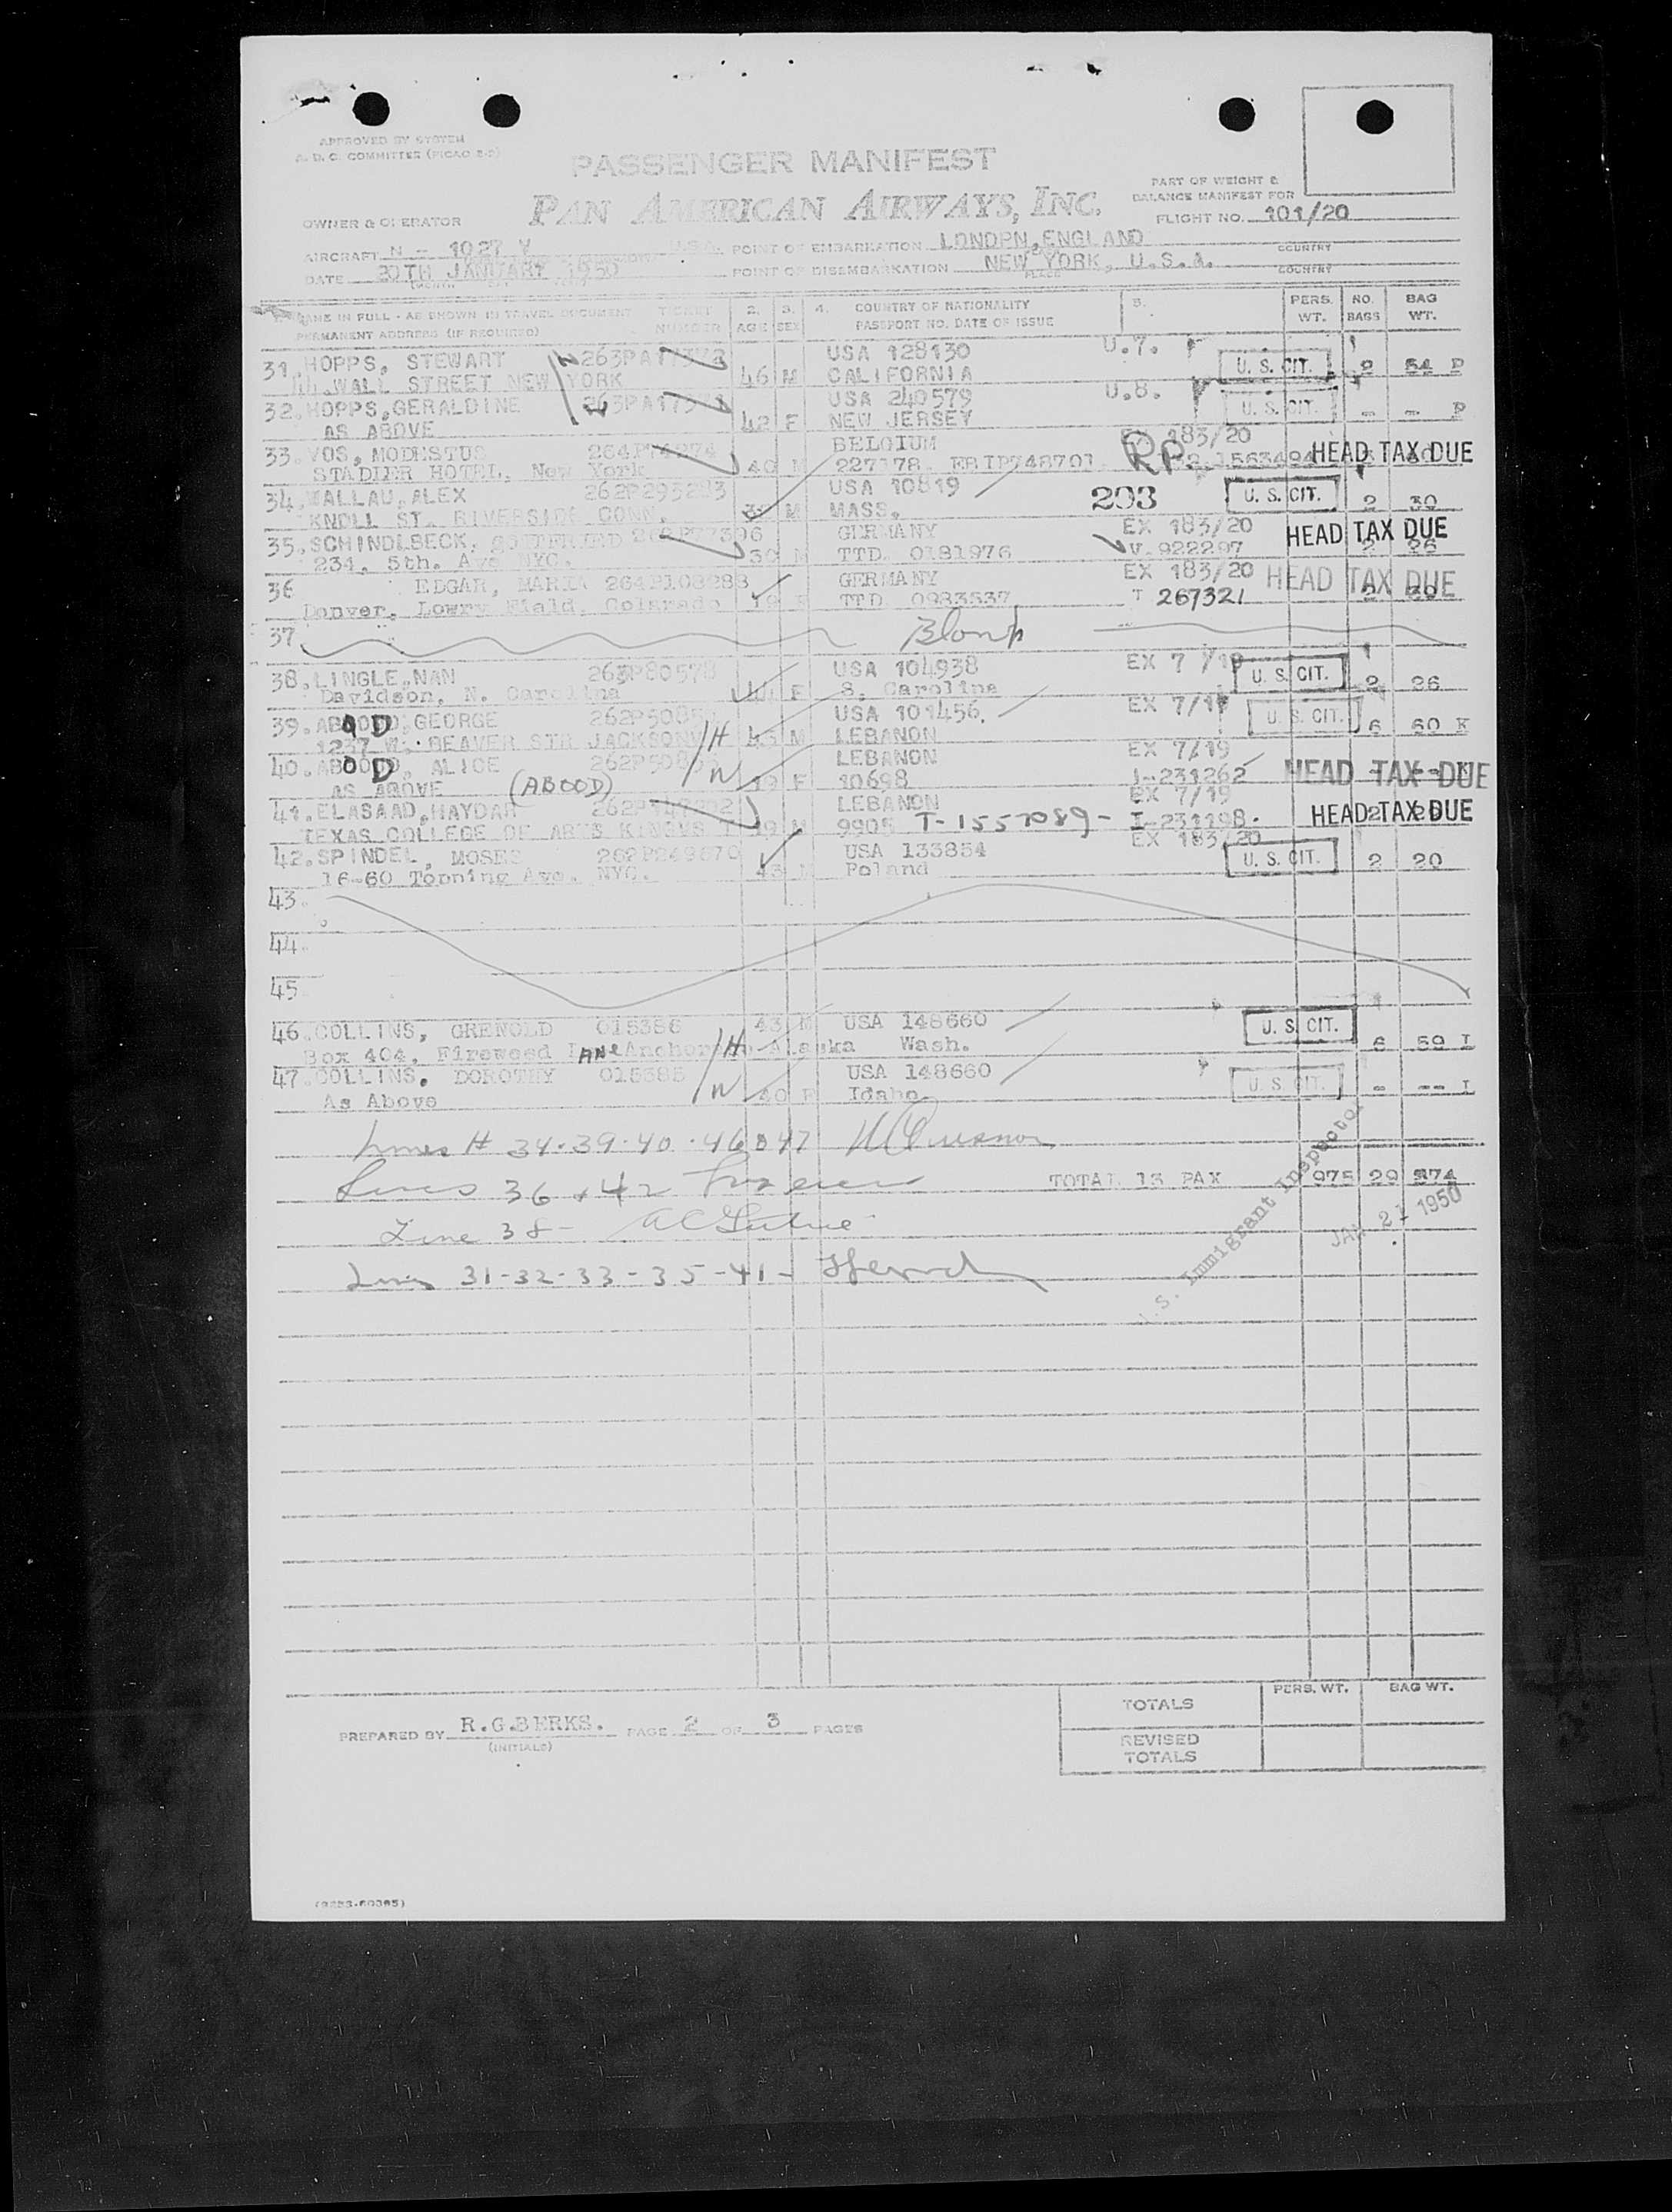 APPROVED BY SYSTEM
A. D. C. COMMITTEE (PICAO 2-2)
PASSENGER MANIFEST
PAN AMERICAN AIRWAYS, INC.
PART OF WEIGHT &
BALANCE MANIFEST FOR
FLIGHT NO. 101/20
OWNER & OPERATOR
AIRCRAFT N - 1027 V U.S.A. POINT OF EMBARKATION LONDPN, ENGLAND COUNTRY
DATE 20TH JANUARY 1950 POINT OF DISEMBARKATION NEW YORK, U.S.A. COUNTRY
PLACE
NAME IN FULL - AS SHOWN IN TRAVEL DOCUMENT TICKET 2. 3. 4. COUNTRY OF NATIONALITY 5. PERS. NO. BAG
PERMANENT ADDRESS (IF REQUIRED) NUMBER AGE SEX PASSPORT NO. DATE OF ISSUE WT. BAGS WT.
31. HOPPS, STEWART USA 128130 U.7.
WALL STREET NEW YORK 46 M CALIFORNIA U. S. CIT. 2 54 P
32. HOPPS, GERALDINE USA 240579 U.8.
AS ABOVE 42 F NEW JERSEY U. S. CIT. - - P
33. VOS, MODESTUS BELGIUM 183/20
HOTEL, New York 40 M 227178 RP HEAD TAX DUE
34. WALLAU, ALEX 262P295283 USA 10819
KNOLL ST. RIVERSIDE CONN. M MASS. 293 U. S. CIT. 2 30
35. SCHINDLBECK, GERMANY EX 183/20
234, 5th. Ave NYC. 30 M TTD 0181976 V.922297 HEAD TAX DUE 2 26
36 EDGAR, MARIA 264P108288 GERMANY EX 183/20
Denver, Lowry Field, Colorado 19 F TTD 0983537 T 267321 HEAD TAX DUE
37. Blank
38. LINGLE, NAN 263P80578 USA 104938 EX 7/19
Davidson, N. Carolina F S. Caroline U. S. CIT. 2 26
39. ABOOD, GEORGE USA 101456. EX 7/19
1237 W. BEAVER STR JACKSONV /H 43 M LEBANON U. S. CIT. 6 60 K
40. ABOOD, ALICE LEBANON EX 7/19
AS ABOVE (ABOOD) /W 39 F 10698 I-231262 HEAD TAX DUE
41. ELASAAD, HAYDAR LEBANON EX 7/19
TEXAS COLLEGE OF ARTS KINGVS T 19 M 9905 T-1557089- I-231198. HEAD TAX DUE
42. SPINDEL, MOSES 262P249670 USA 133854 EX 183/20
16-60 Topping Ave. NYC. 43 M Poland U. S. CIT. 2 20
43.
44.
45
46. COLLINS, GRENOLD 015386 43 M USA 148660
Box 404, Fireweed Lane Anchorage Alaska /H Wash. U. S. CIT. 6 59 I
47. COLLINS. DOROTHY 015385 USA 148660
As Above /W 40 F Idaho U. S. CIT. - -- I
Lines # 34-39-40-46 & 47
TOTAL 15 PAX 975 29 374
Lines 36 + 42
JAN 21 1950
Line 38-
U.S. Immigrant Inspector
Lines 31-32-33-35-41-
PREPARED BY R.G.BERKS. PAGE 2 OF 3 PAGES
(INITIALS)
PERS. WT. BAG WT.
TOTALS
REVISED
TOTALS